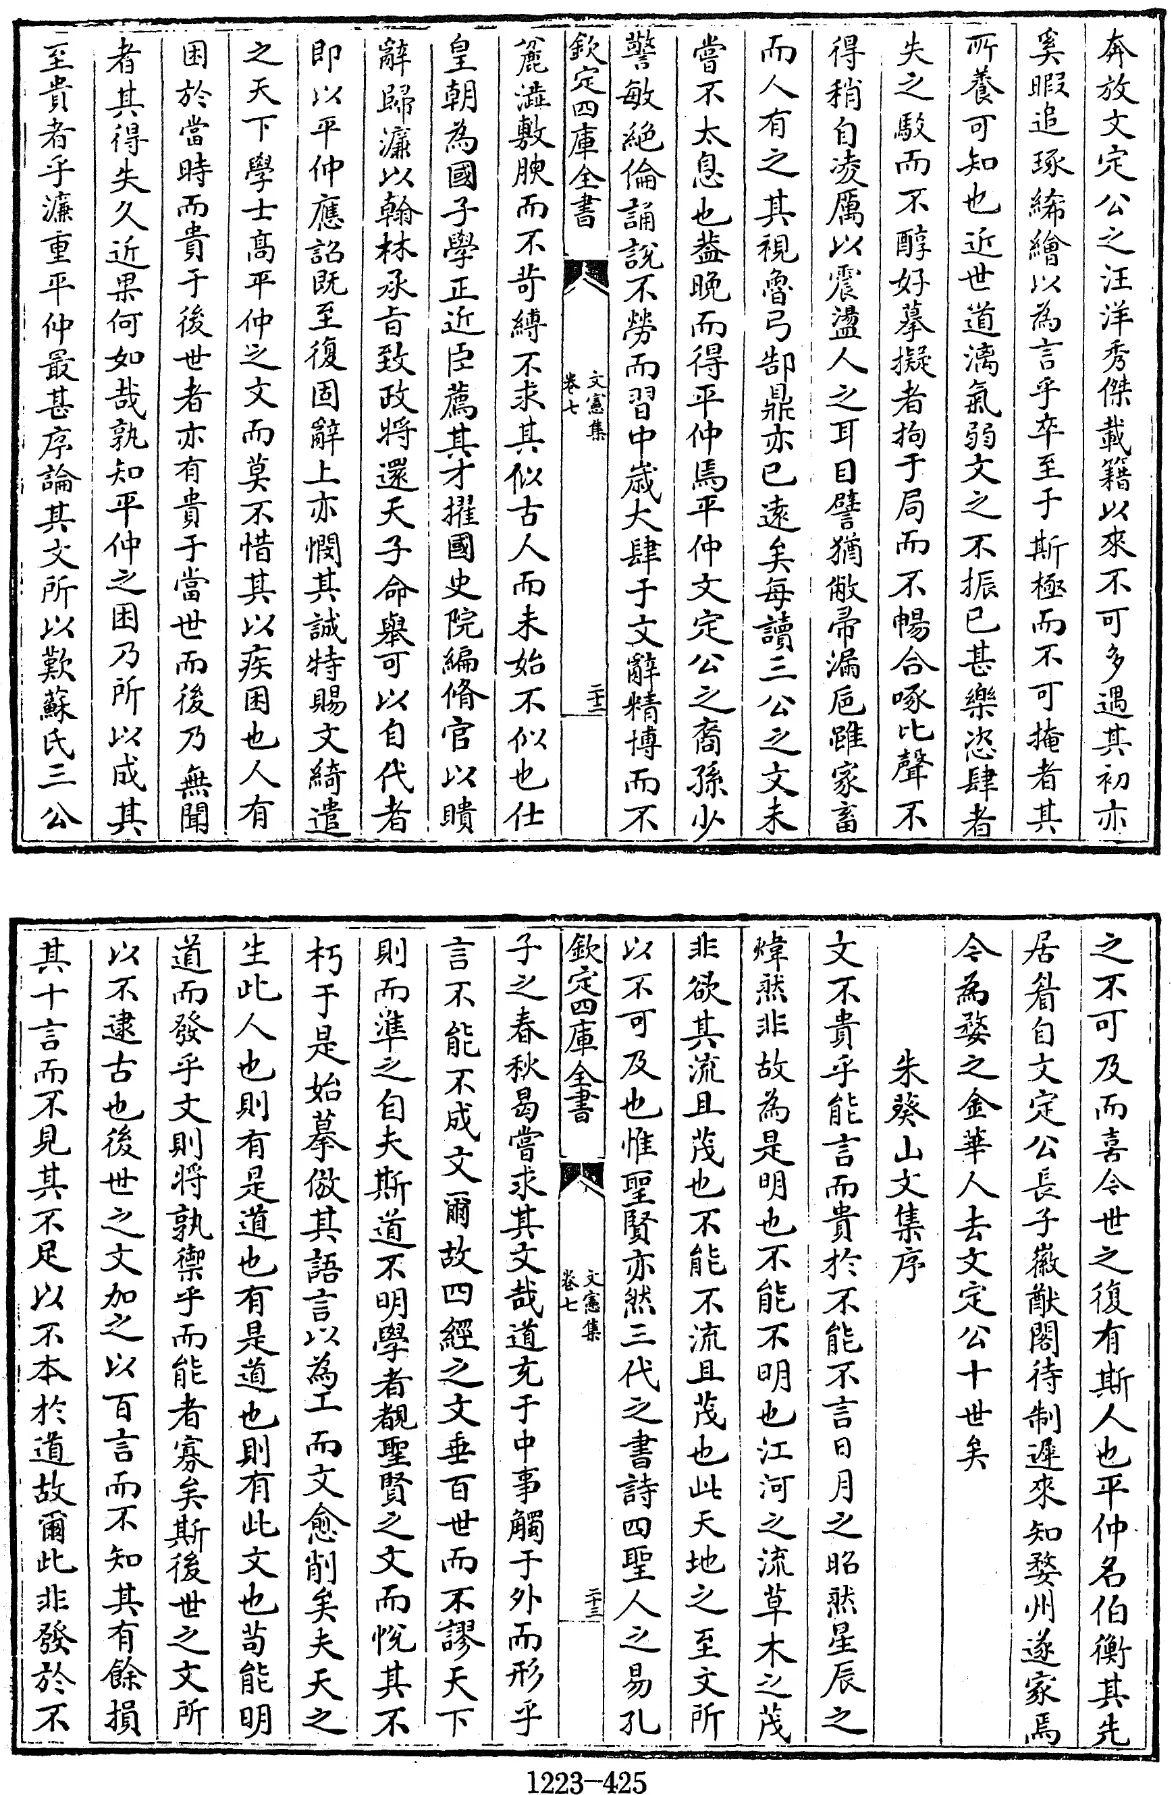 奔放文定公之汪洋秀傑載籍以來不可多遇其初亦
奚暇追琢絺繪以為言乎卒至于斯極而不可掩者其
所養可知也近世道漓氣弱文之不振已甚樂恣肆者
失之駁而不醇好摹擬者拘于局而不暢合喙比聲不
得稍自凌厲以震盪人之耳目譬猶敝帚漏巵雖家畜
而人有之其視魯弓郜鼎亦已遠矣每讀三公之文未
嘗不太息也葢晚而得平仲焉平仲文定公之裔孫少
警敏絶倫誦說不勞而習中歲大肆于文辭精博而不
欽定四庫全書
文憲集
卷七
二十二
麄澁敷腴而不苛縛不求其似古人而未始不似也仕
皇朝為國子學正近臣薦其才擢國史院編脩官以瞶
辭歸濂以翰林承旨致政將還天子命舉可以自代者
即以平仲應詔既至復固辭上亦憫其誠特賜文綺遣
之天下學士高平仲之文而莫不惜其以疾困也人有
困於當時而貴于後世者亦有貴于當世而後乃無聞
者其得失久近果何如哉孰知平仲之困乃所以成其
至貴者乎濂重平仲最甚序論其文所以歎蘇氏三公
之不可及而喜今世之復有斯人也平仲名伯衡其先
居睂自文定公長子徽猷閣待制遲來知婺州遂家焉
今為婺之金華人去文定公十世矣
朱葵山文集序
文不貴乎能言而貴於不能不言日月之昭然星辰之
煒然非故為是明也不能不明也江河之流草木之茂
非欲其流且茂也不能不流且茂也此天地之至文所
以不可及也惟聖賢亦然三代之書詩四聖人之易孔
欽定四庫全書
文憲集
卷七
二十三
子之春秋曷嘗求其文哉道充于中事觸于外而形乎
言不能不成文爾故四經之文垂百世而不謬天下
則而準之自夫斯道不明學者覩聖賢之文而悅其不
朽于是始摹倣其語言以為工而文愈削矣夫天之
生此人也則有是道也有是道也則有此文也苟能明
道而發乎文則將孰禦乎而能者寡矣斯後世之文所
以不逮古也後世之文加之以百言而不知其有餘損
其十言而不見其不足以不本於道故爾此非發於不
1223-425